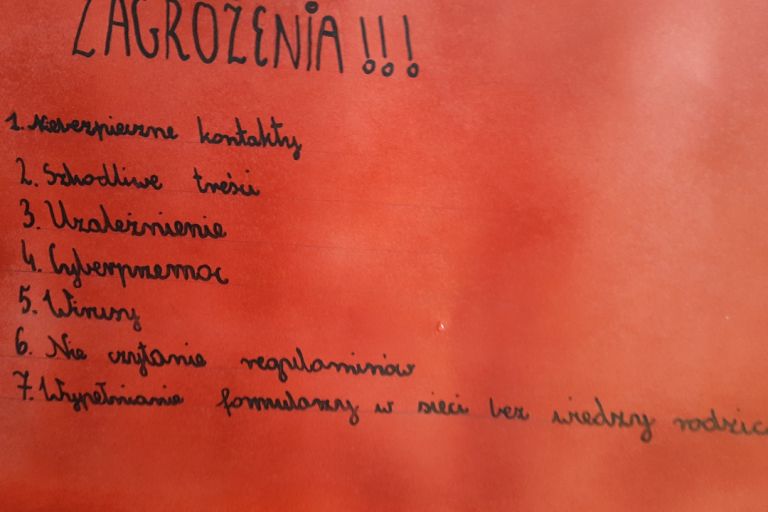 ZAGROŻENIA!!!
1. Niebezpieczne kontakty
2. Szkodliwe treści
3. Uzależnienie
4. Cyberprzemoc
5. Wirusy
6. Nie czytanie regulaminów
7. Wypełnianie formularzy w sieci bez wiedzy rodzic